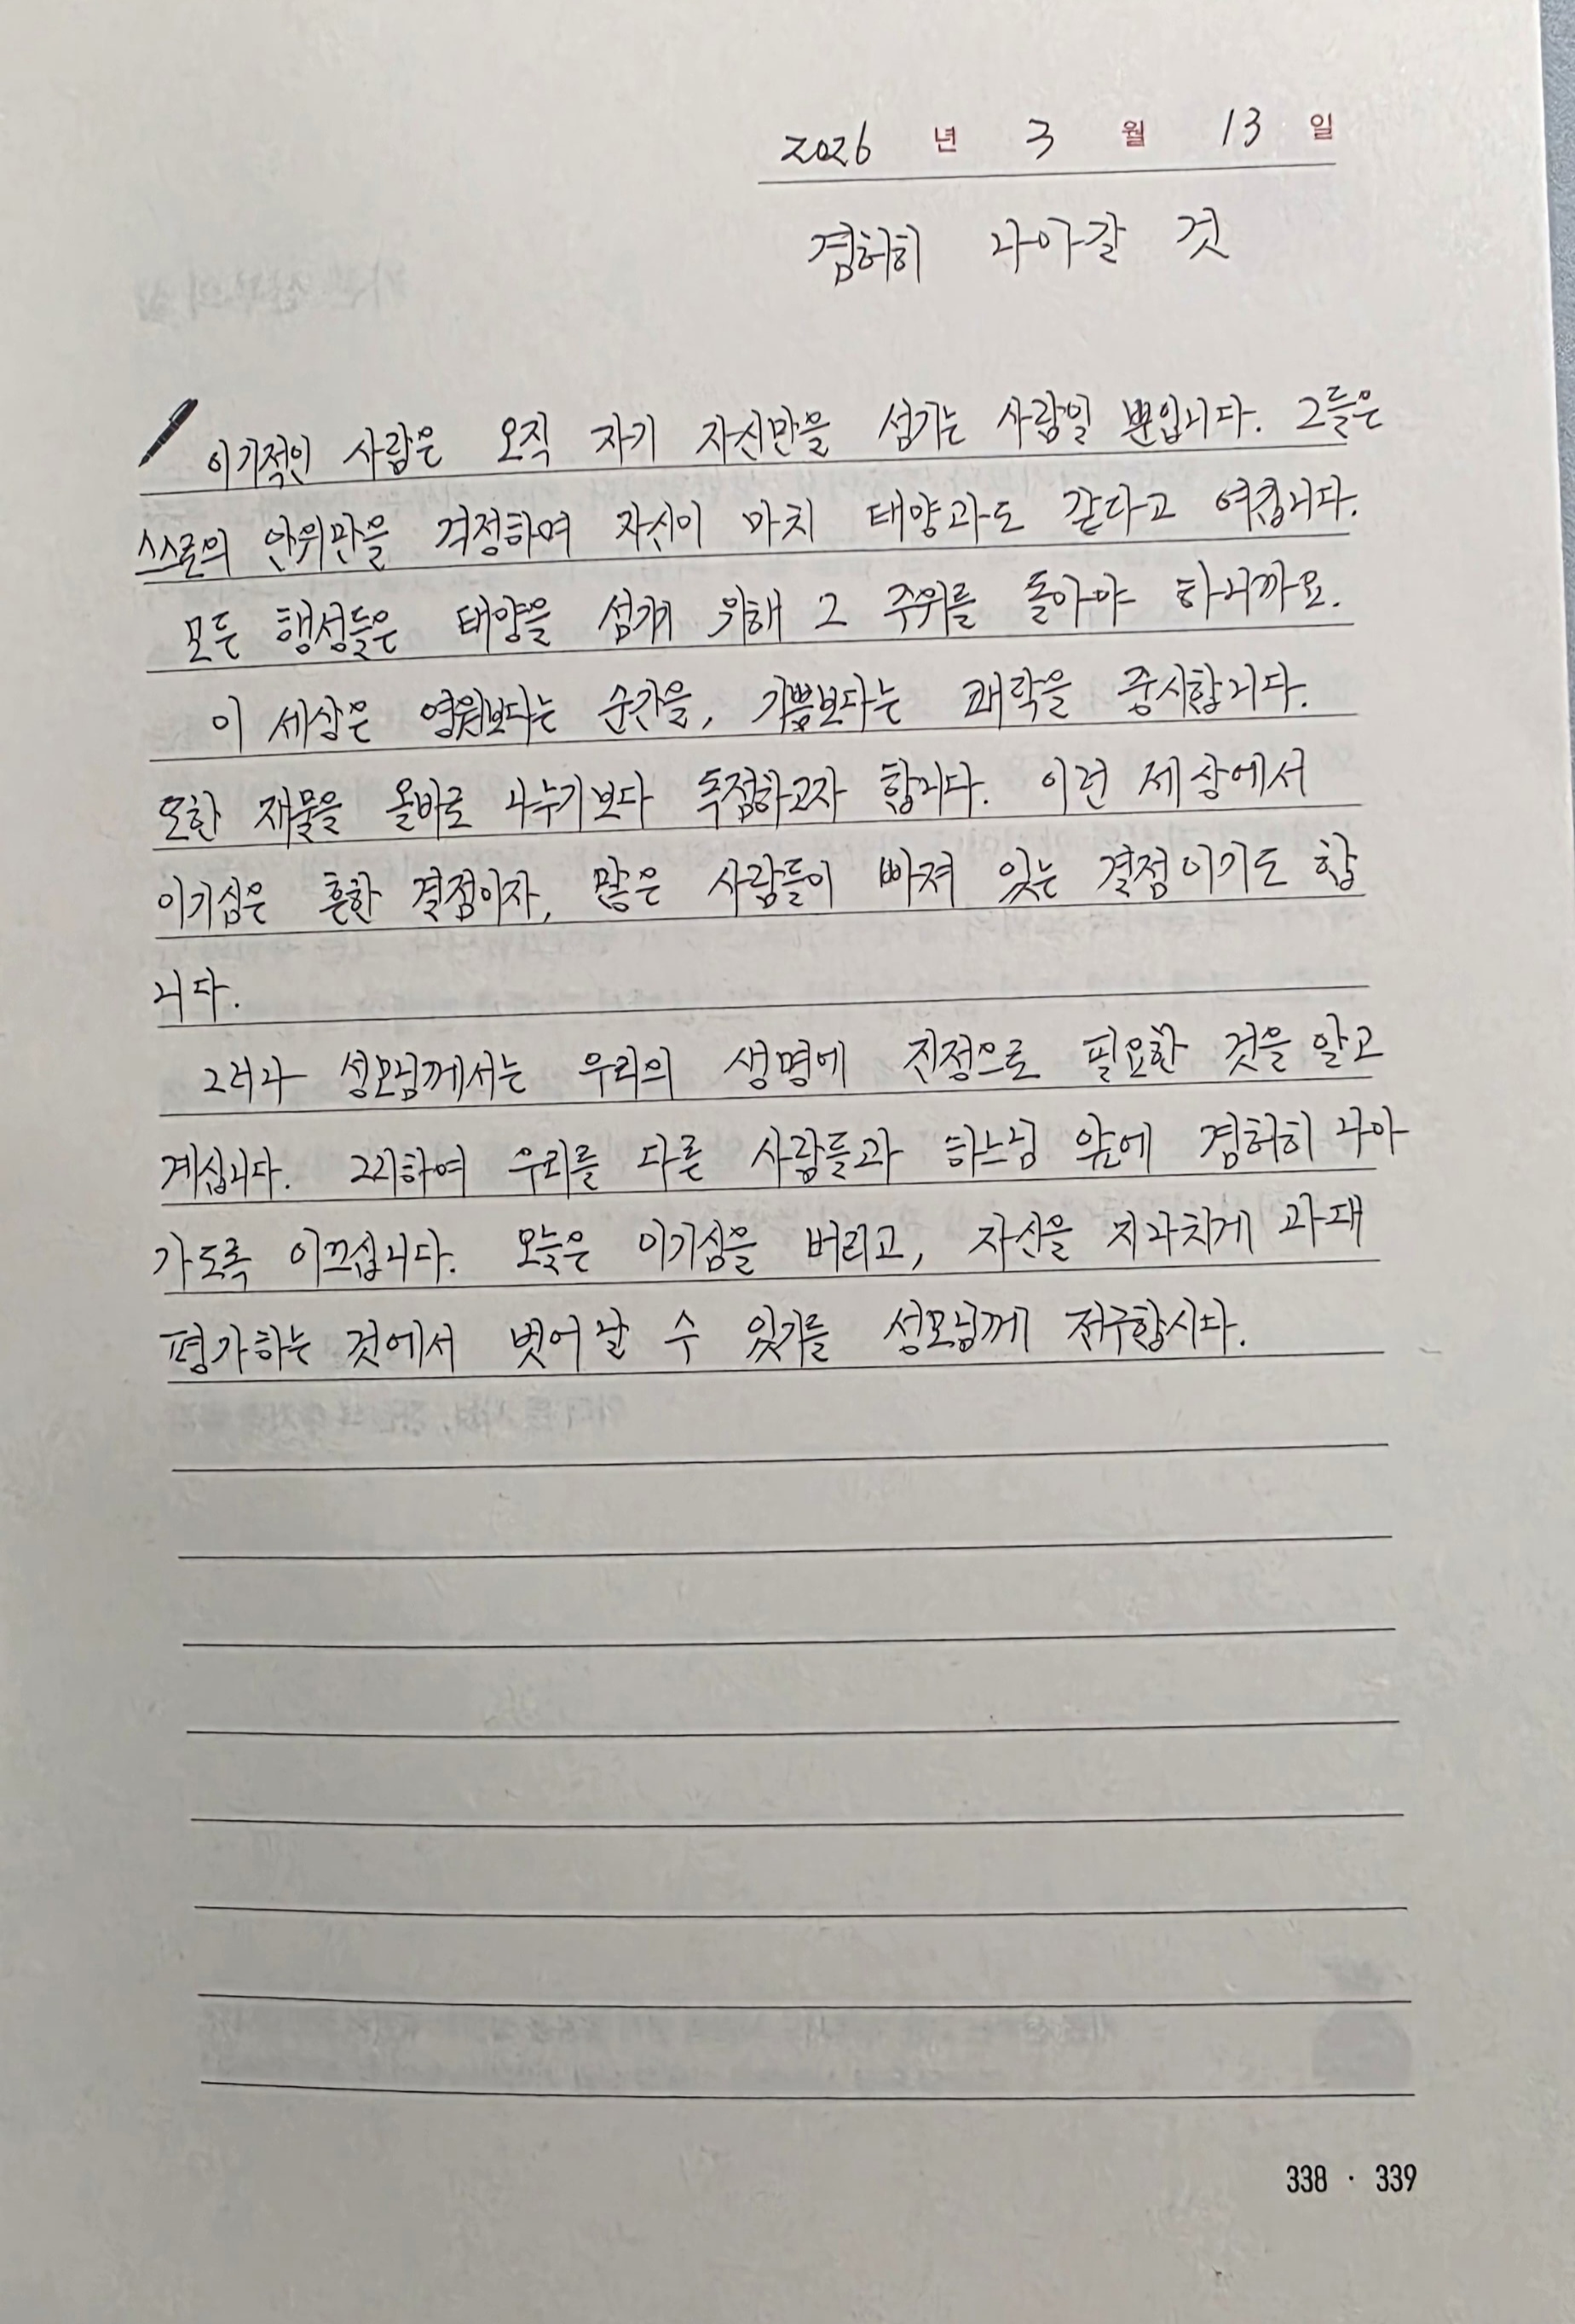 2026 년 3 월 13 일
겸허히 나아갈 것
이기적인 사람은 오직 자기 자신만을 섬기는 사람일 뿐입니다. 그들은
스스로의 안위만을 걱정하며 자신이 마치 태양과도 같다고 여깁니다.
모든 행성들은 태양을 섬기기 위해 그 주위를 돌아야 하니까요.
이 세상은 영원보다는 순간을, 기쁨보다는 쾌락을 중시합니다.
또한 재물을 올바로 나누기보다 독점하고자 합니다. 이런 세상에서
이기심은 흔한 결점이자, 많은 사람들이 빠져 있는 결점이기도 합
니다.
그러나 성모님께서는 우리의 생명에 진정으로 필요한 것을 알고
계십니다. 그리하여 우리를 다른 사람들과 하느님 앞에 겸허히 나아
가도록 이끄십니다. 오늘은 이기심을 버리고, 자신을 지나치게 과대
평가하는 것에서 벗어날 수 있기를 성모님께 전구합시다.
338 · 339